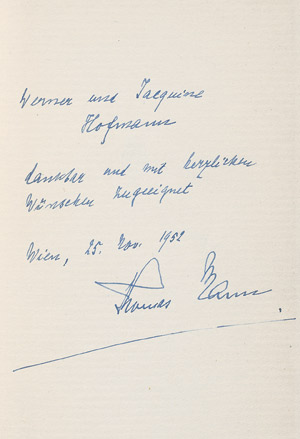 Werner und Jacquine
Hofmann
dankbar und mit herzlichen
Wünschen zugeeignet
Wien, 25. Nov. 1952
Thomas Mann